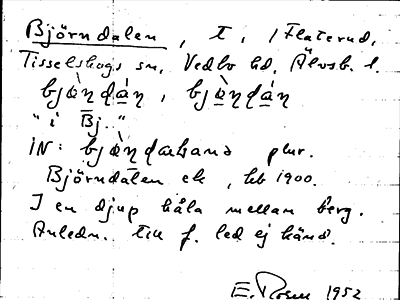 Björndalen, t, i Flaterud,
Tisselskogs sn, Vedbo hd, Älvsb. l.
bjὰṇdάn, bjὰṇdάn
"i Bj.."
IN: bjὰṇdαbαnα plur.
Björndalen ek, hb 1900.
I en djup håla mellan berg.
Anledn. till f. led ej känd.
E. Rosen 1952